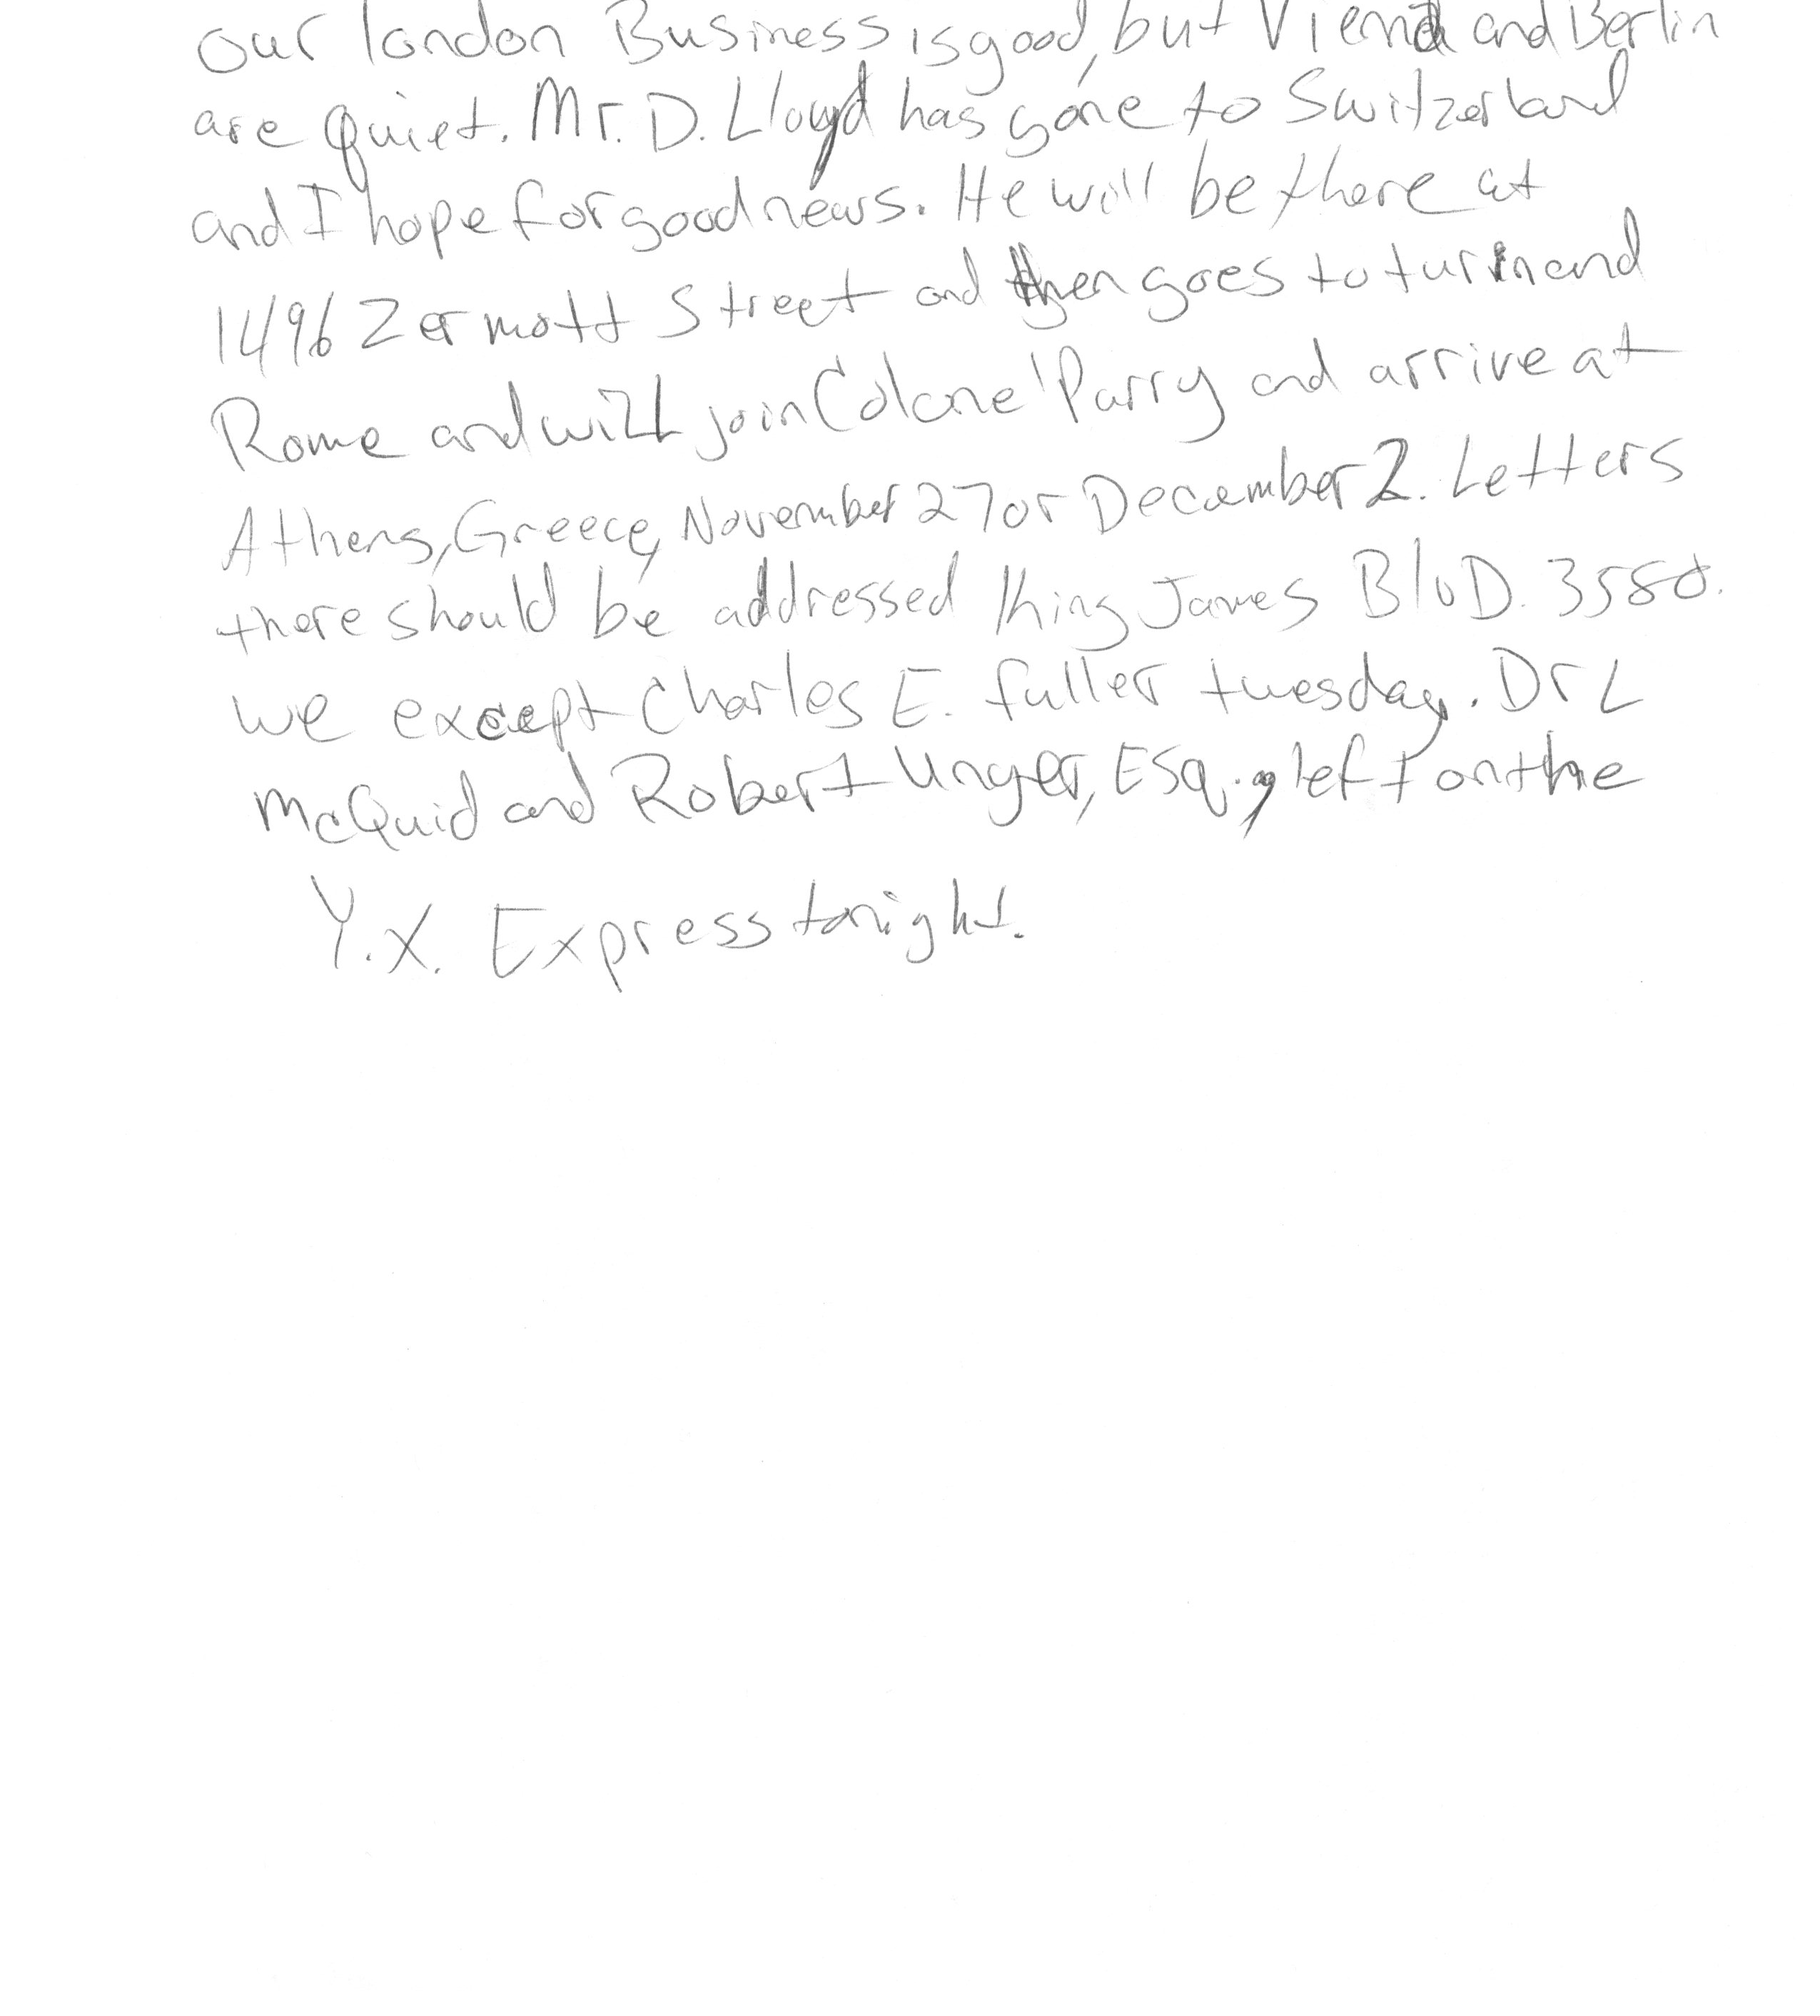 our london Business is good, but Vienna and Berlin
are quiet. Mr. D. Lloyd has gone to Switzerland
and I hope for good news. He will be there at
1496 Zermott Street and then goes to turin and
Rome and will join Colonel Parry and arrive at
Athens, Greece, November 27 or December 2. Letters
there should be addressed King James BlvD. 3580.
we except Charles E. fuller tuesday. Dr L
McQuid and Robert Unger, Esq., left on the
Y.X. Express tonight.